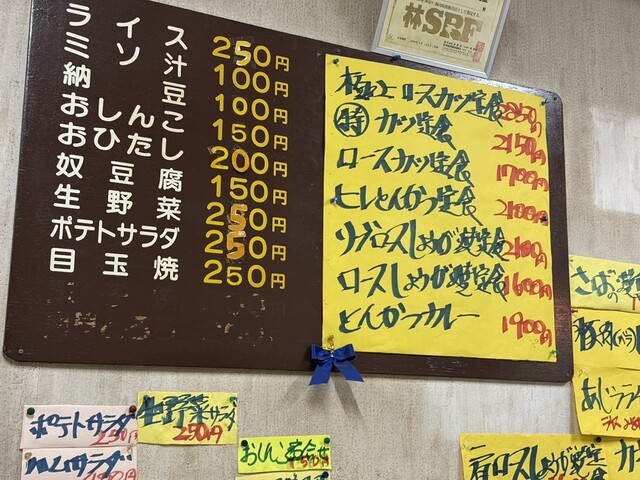 ライス 250円
ミソ汁 100円
納豆 100円
おしんこ 150円
おひたし 200円
奴豆腐 150円
生野菜 250円
ポテトサラダ 250円
目玉焼 250円
林SPF
極上ロースカツ定食 2850円
特カツ定食 2150円
ロースカツ定食 1700円
ヒレとんかつ定食 2100円
リブロースしょうが焼定食 2100円
ロースしょうが焼定食 1600円
とんかつカレー 1900円
ポテトサラダ 250円
生野菜サラダ 250円
ハムサラダ
おしんこ盛合せ
さばの
あじフライ
肩ロースしょうが焼定食